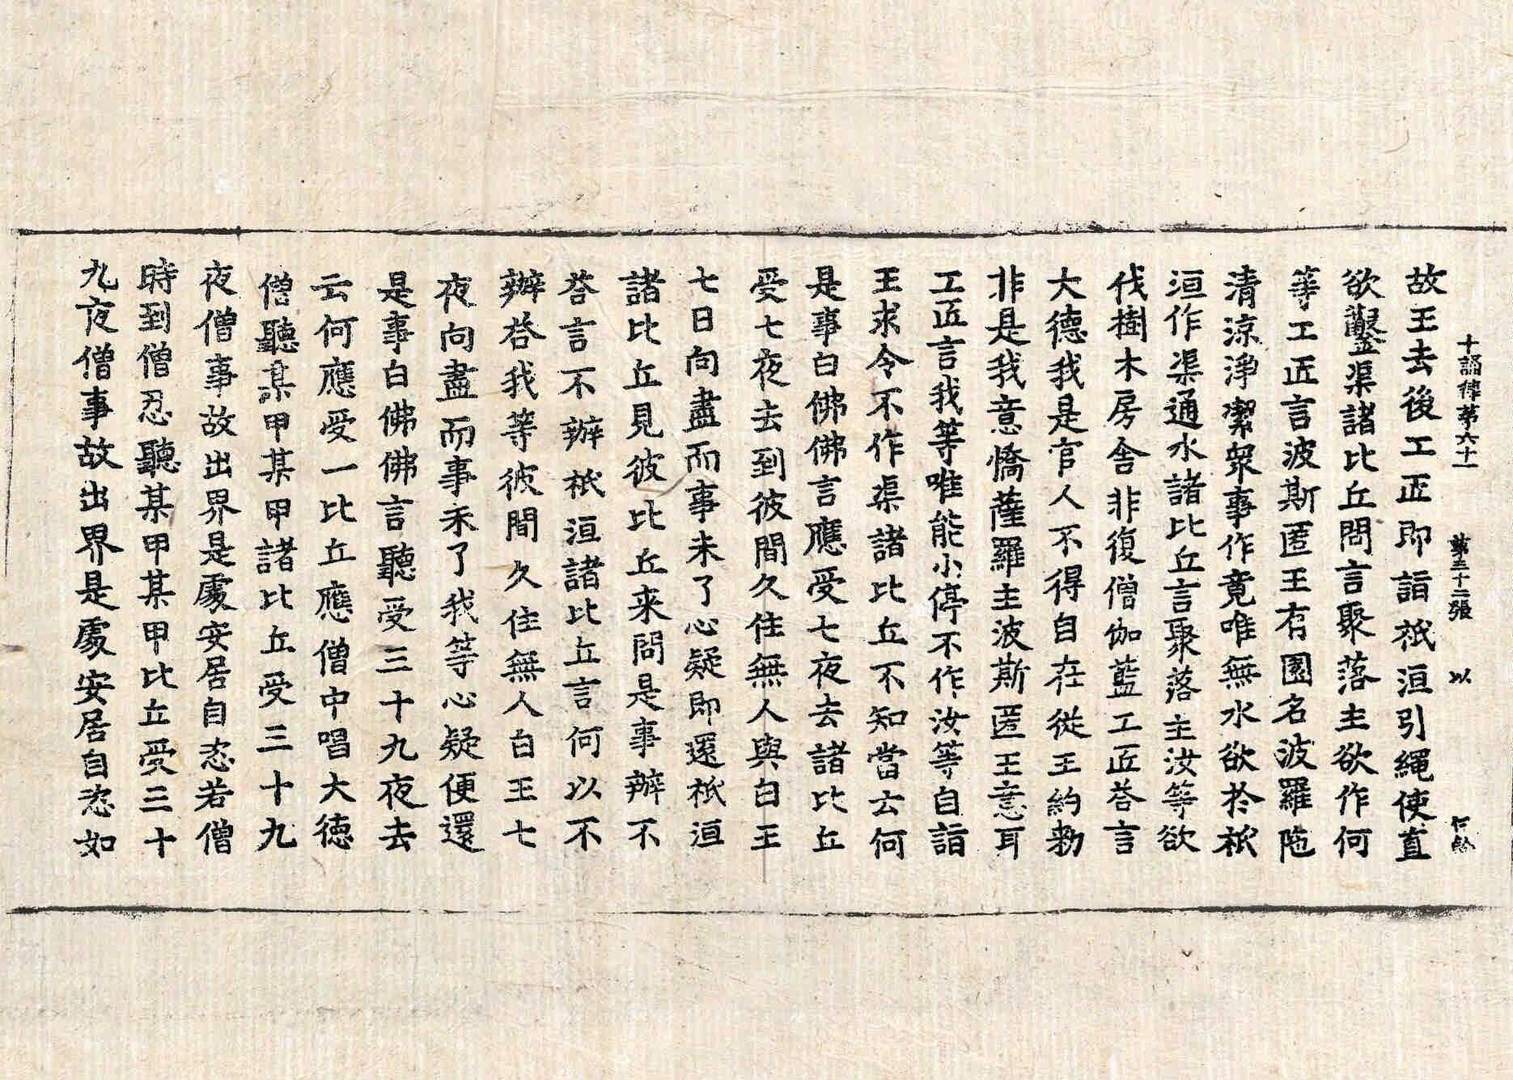 十誦律第六十一　第三十二張　以
故王去後工匠即詣祇洹引繩使直
欲鑿渠諸比丘問言聚落主欲作何
等工匠言波斯匿王有園名波羅陁
清涼淨潔衆事作竟唯無水欲於祇
洹作渠通水諸比丘言聚落主汝等欲
伐樹木房舍非復僧伽藍工匠荅言
大德我是官人不得自在從王約勑
非是我意憍薩羅主波斯匿王意耳
工匠言我等唯能小停不作汝等自詣
王求令不作渠諸比丘不知當云何
是事白佛佛言應受七夜去諸比丘
受七夜去到彼間久住無人與白王
七日向盡而事未了心疑即還祇洹
諸比丘見彼比丘来問是事辦不
荅言不辦祇洹諸比丘言何以不
辦荅我等彼間久住無人白王七
夜向盡而事未了我等心疑便還
是事白佛佛言聽受三十九夜去
云何應受一比丘應僧中唱大德
僧聽某甲某甲諸比丘受三十九
夜僧事故出界是處安居自恣若僧
時到僧忍聽某甲某甲比丘受三十
九夜僧事故出界是處安居自恣如